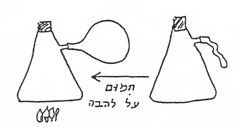 חמום
על להבה